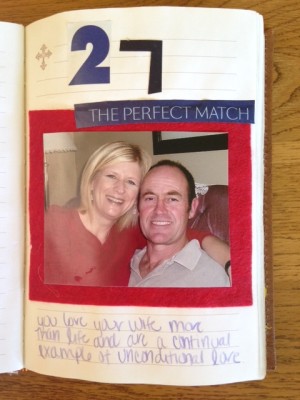 27
THE PERFECT MATCH
you love your wife more
than life and are a continual
example of unconditional love